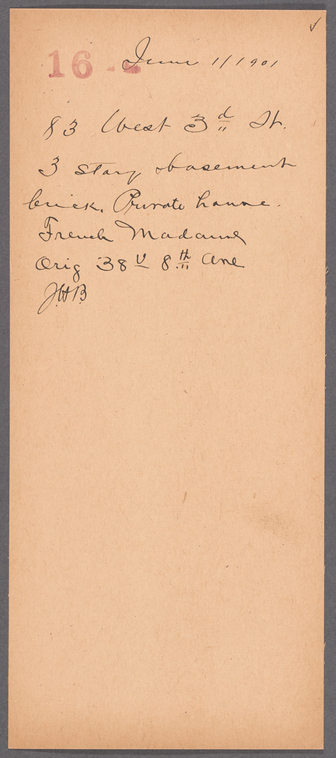 ✓
16
June 1/1901
83 West 3d St.
3 story basement
brick. Private house.
French Madame
Orig 38 8th Ave
JHB